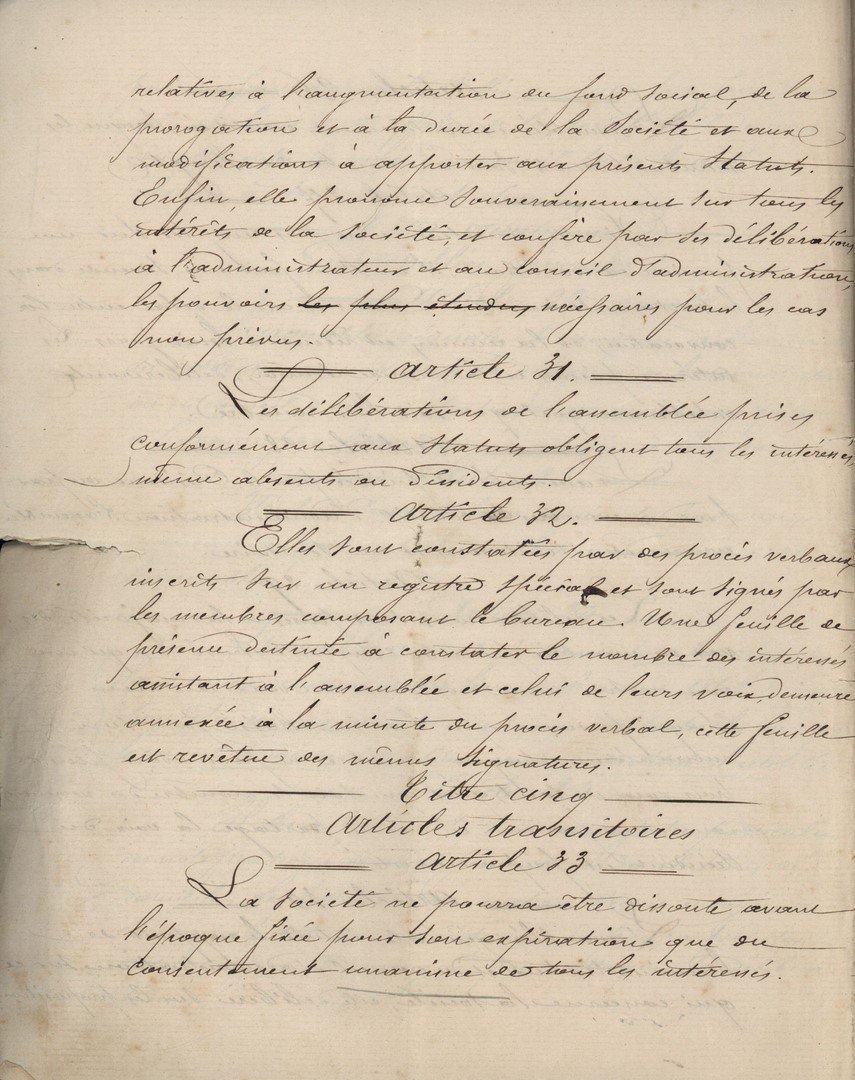 relatives à l'augmentation du fond social, de la
prorogation et à la durée de la Société et aux
modifications à apporter aux présents Statuts.
Enfin, elle prononce souverainement sur tous les
intérêts de la Société, et confère par ses délibérations
à l'administrateur et au conseil d'administration,
les pouvoirs les plus étendus nécessaires pour les cas
non prévus.
Article 31.
Les délibérations de l'assemblée prises
conformément aux Statuts obligent tous les intéressés,
même absents ou dissidents.
Article 32.
Elles sont constatées par des procès verbaux
inscrits sur un registre spécial et sont signés par
les membres composant le bureau. Une feuille de
présence destinée à constater le nombre des intéressés
assistant à l'assemblée et celui de leurs voix, demeure
annexée à la minute du procès verbal, cette feuille
est revêtue des mêmes signatures.
Titre cinq
Articles transitoires
Article 33
La Société ne pourra être dissoute avant
l'époque fixée pour son expiration que du
consentement unanime de tous les intéressés.